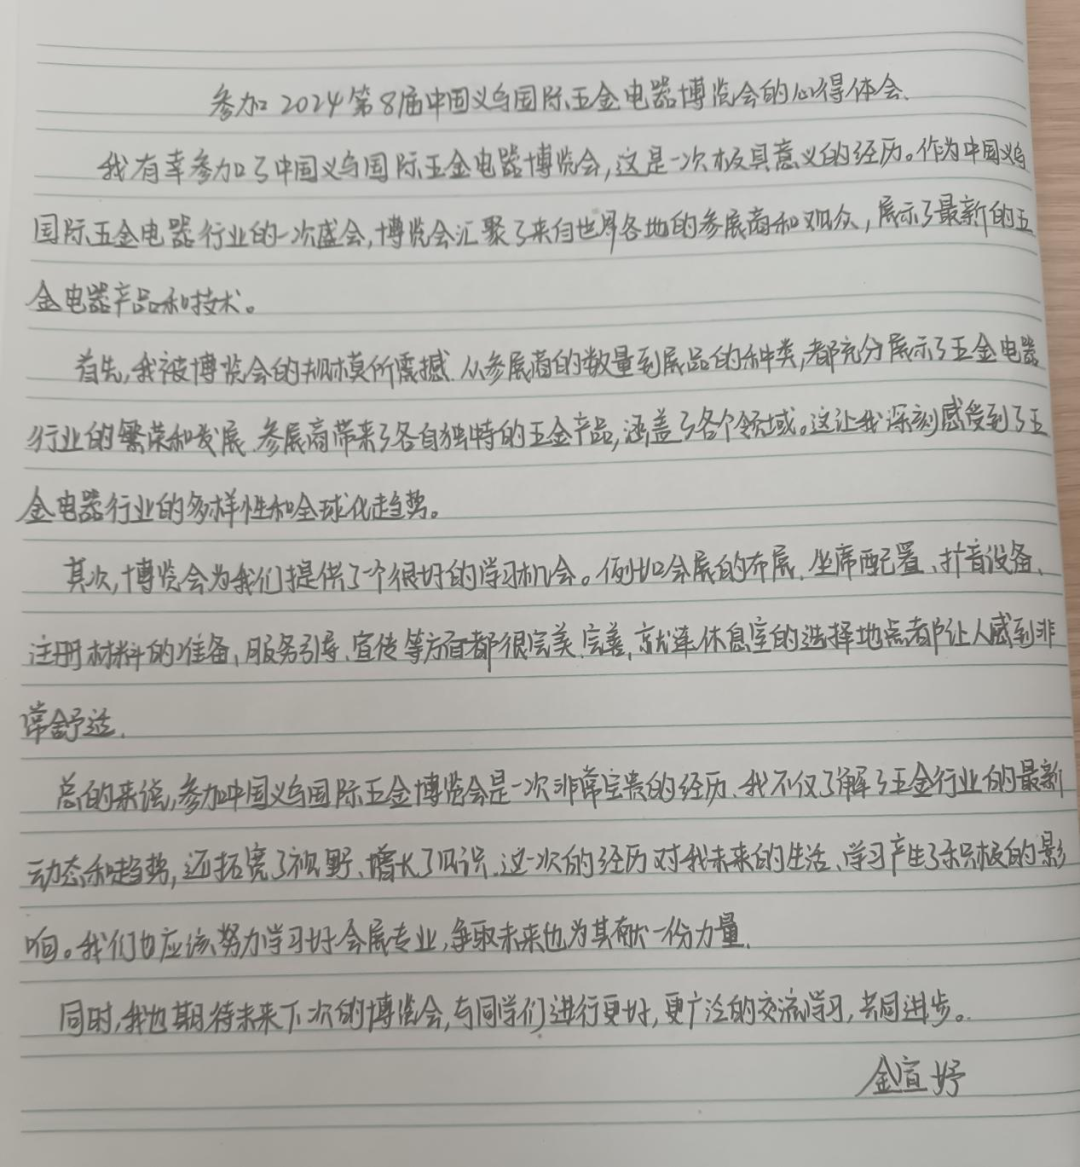 参加2024第8届中国义乌国际五金电器博览会的心得体会.
我有幸参加了中国义乌国际五金电器博览会,这是一次极具意义的经历。作为中国义乌
国际五金电器行业的一次盛会,博览会汇聚了来自世界各地的参展商和观众,展示了最新的五
金电器产品和技术。
首先,我被博览会的规模所震撼.从参展商的数量到展品的种类,都充分展示了五金电器
行业的繁荣和发展.参展商带来了各自独特的五金产品,涵盖了各个领域。这让我深刻感受到了五
金电器行业的多样性和全球化趋势。
其次,博览会为我们提供了个很好的学习机会。例如会展的布展、坐席配置、扩音设备、
注册材料的准备、服务引导、宣传等方面都很完美.完善,就连休息室的选择地点都让人感到非
常舒适.
总的来说,参加中国义乌国际五金博览会是一次非常宝贵的经历.我不仅了解了五金行业的最新
动态和趋势,还拓宽了视野、增长了见识.这一次的经历对我未来的生活、学习产生了积极的影
响。我们也应该努力学习好会展专业,争取未来也为其献一份力量.
同时,我也期待未来下次的博览会,与同学们进行更好,更广泛的交流学习,共同进步。
金宣妤